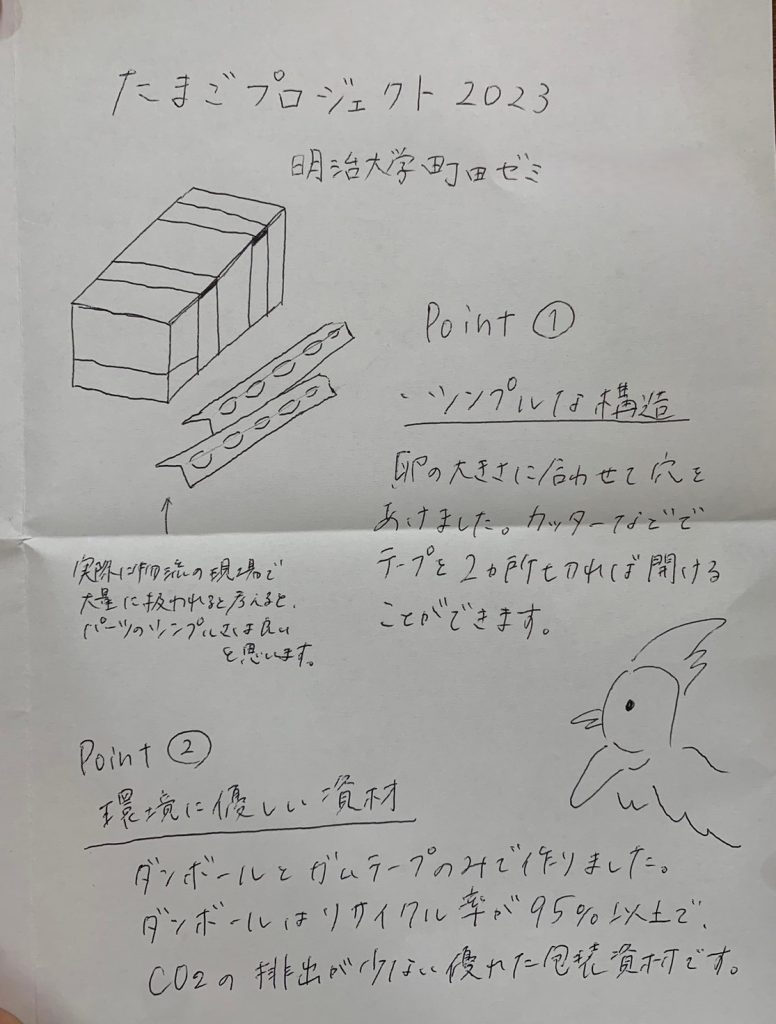 たまごプロジェクト 2023
明治大学町田ゼミ
Point ①
・シンプルな構造
卵の大きさに合わせて穴を
あけました。カッターなどで
テープを2ヵ所切れば開ける
ことができます。
実際に物流の現場で
大量に扱われると考えると、
パーツのシンプルさは良い
と思います。
Point ②
環境に優しい資材
ダンボールとガムテープのみで作りました。
ダンボールはリサイクル率が95%以上で、
CO2の排出が少ない優れた包装資材です。